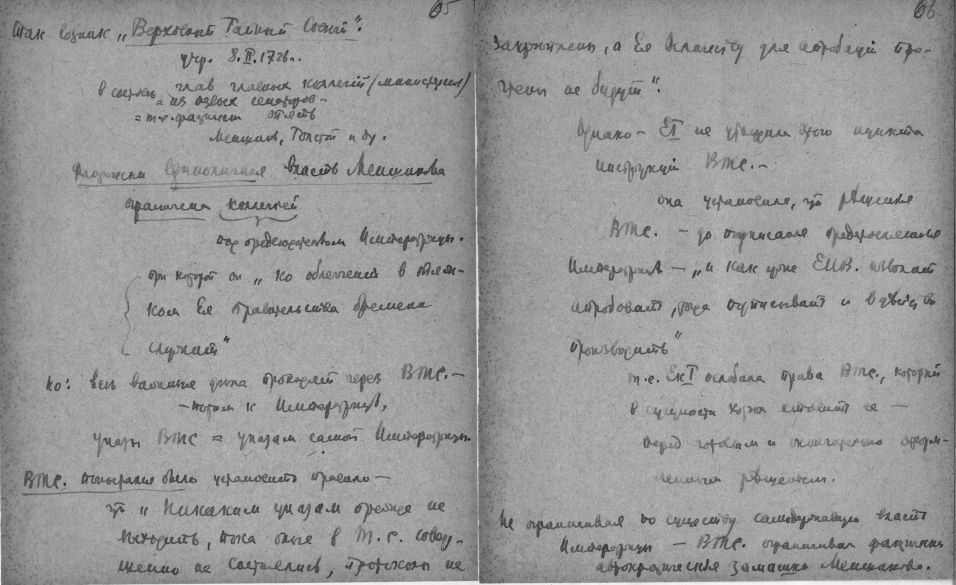 65
Так возник „Верховный Тайный Совет“.
учр. 8.II.1726 г.
в составе глав главных коллегий (министерств)
= из первых сенаторов –
= т.е. фактически опять
Меншиков, Толстой и др.
Фактически единоличная власть Меншикова
ограничена коллегией
под председательством Императрицы.
при которой он „ко облегчению в
ком Ея правительства бремени
служит“
но: все важные дела проходят через ВТС. –
– потом к Императрице,
указы ВТС = указам самой Императрицы.
ВТС. было установить правило –
что „Никаким указам прежде не
выходить, пока оные в Т. С. совер-
шенно не состоялись, протоколы не
66
закреплены, а Ея Величеству для апробации про-
чтены не будут“.
Однако – ЕI не утвердила этого пункта
инструкций ВТС. –
она установила, что решения
ВТС. – до подписания
Императрице – „и как уже ЕИВ. изволит
апробовать, тогда подписывать и в действо
производить“
т.е. ЕкI ослабила права ВТС., который
в сущности хотел ставить ее –
перед готовым и окончательно оформ-
ленным решением.
Не ограничивая по существу самодержавную власть
Императрицы – ВТС. ограничивал фактически
автократические замашки Меншикова.